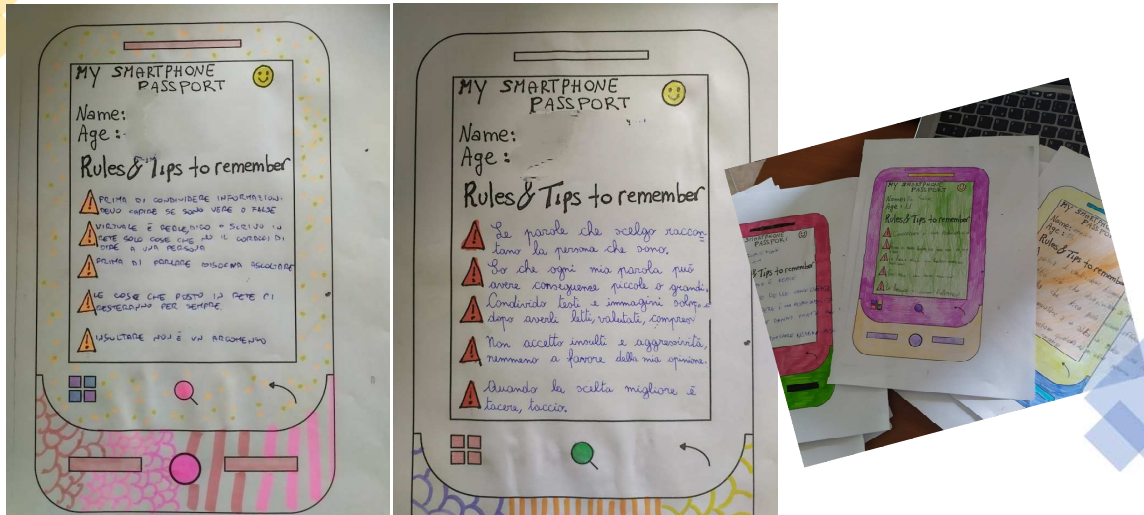 MY SMARTPHONE
PASSPORT
Name:
Age :
Rules & Tips to remember
PRIMA DI CONDIVIDERE INFORMAZIONI
DEVO CAPIRE SE SONO VERE O FALSE
VIRTUALE È REALE, DICO O SCRIVO IN
RETE SOLO COSE CHE HO IL CORAGGIO DI
DIRE A UNA PERSONA
PRIMA DI PARLARE BISOGNA ASCOLTARE
LE COSE CHE POSTO IN RETE CI
RESTERANNO PER SEMPRE
INSULTARE NON È UN ARGOMENTO
MY SMARTPHONE
PASSPORT
Name:
Age :
Rules & Tips to remember
Le parole che scelgo raccon
tano la persona che sono.
So che ogni mia parola può
avere conseguenze piccole o grandi.
Condivido testi e immagini solo
dopo averli letti, valutati, compresi
Non accetto insulti e aggressività,
nemmeno a favore della mia opinione.
Quando la scelta migliore è
tacere, taccio.
SMARTPHONE
PASSPORT
& Tips to remember
MY SMARTPHONE
PASSPORT
Name:
Age :
Rules & Tips to remember
MY SMARTPHONE
PASSPORT
Name:
Age :
Rules & Tips to remember